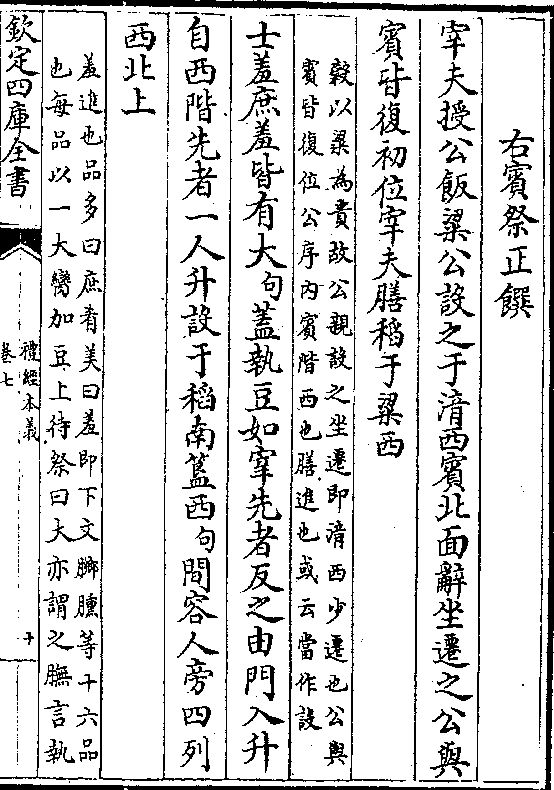 右賓祭正饌
宰夫授公飯粱公設之于湆西賓北面辭坐遷之公與
賓皆復初位宰夫膳稻于粱西
穀以粱為貴故公親設之坐遷即湆西少遷也公與
賓皆復位公序內賓階西也膳進也或云當作設
士羞庶羞皆有大句蓋執豆如宰先者反之由門入升
自西階先者一人升設于稻南簋西句間容人旁四列
西北上
羞進也品多曰庶肴美曰羞即下文膷臐等十六品
也每品以一大臠加豆上待祭曰大亦謂之膴言執
欽定四庫全書
禮經本義
卷七
十